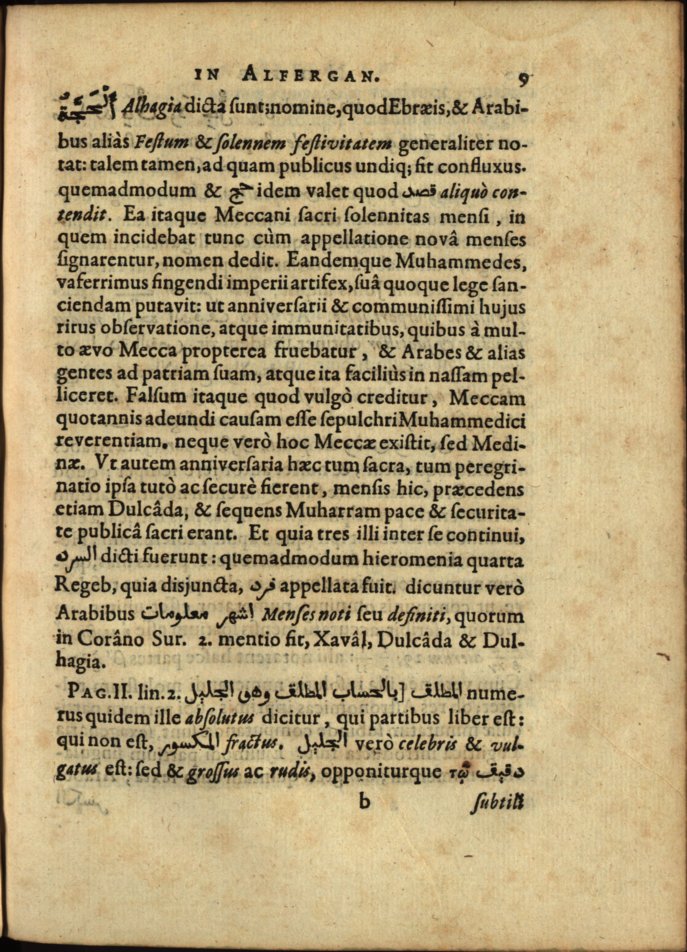 IN ALFERGAN. 9
الحجة Alhagia dicta sunt; nomine, quod Ebræis, & Arabi-
bus aliàs Festum & solennem festivitatem generaliter no-
tat: talem tamen, ad quam publicus undiq; fit confluxus.
quemadmodum & حج idem valet quod قصد aliquò con-
tendit. Ea itaque Meccani sacri solennitas mensi, in
quem incidebat tunc cùm appellatione novâ menses
signarentur, nomen dedit. Eandemque Muhammedes,
vaferrimus fingendi imperii artifex, suâ quoque lege san-
ciendam putavit: ut anniversarii & communissimi hujus
rirus observatione, atque immunitatibus, quibus à mul-
to ævo Mecca propterea fruebatur, & Arabes & alias
gentes ad patriam suam, atque ita faciliùs in nassam pel-
liceret. Falsum itaque quod vulgò creditur, Meccam
quotannis adeundi causam esse sepulchri Muhammedici
reverentiam. neque verò hoc Meccæ existit, sed Medi-
næ. Vt autem anniversaria hæc tum sacra, tum peregri-
natio ipsa tutò ac securè fierent, mensis hic, præcedens
etiam Dulcâda, & sequens Muharram pace & securita-
te publicâ sacri erant. Et quia tres illi inter se continui,
السرد dicti fuerunt: quemadmodum hieromenia quarta
Regeb, quia disjuncta, فرد appellata fuit. dicuntur verò
Arabibus اشهر معلومات Menses noti seu definiti, quorum
in Corâno Sur. 2. mentio fit, Xavâl, Dulcâda & Dul-
hagia.
PAG. II. lin. 2. بالحساب المطلق وهى الجليل] المطلق nume-
rus quidem ille absolutus dicitur, qui partibus liber est:
qui non est, المكسور fractus. الجليل verò celebris & vul-
gatus est: sed & grossus ac rudis, opponiturque τῷ دقيق
b subtili